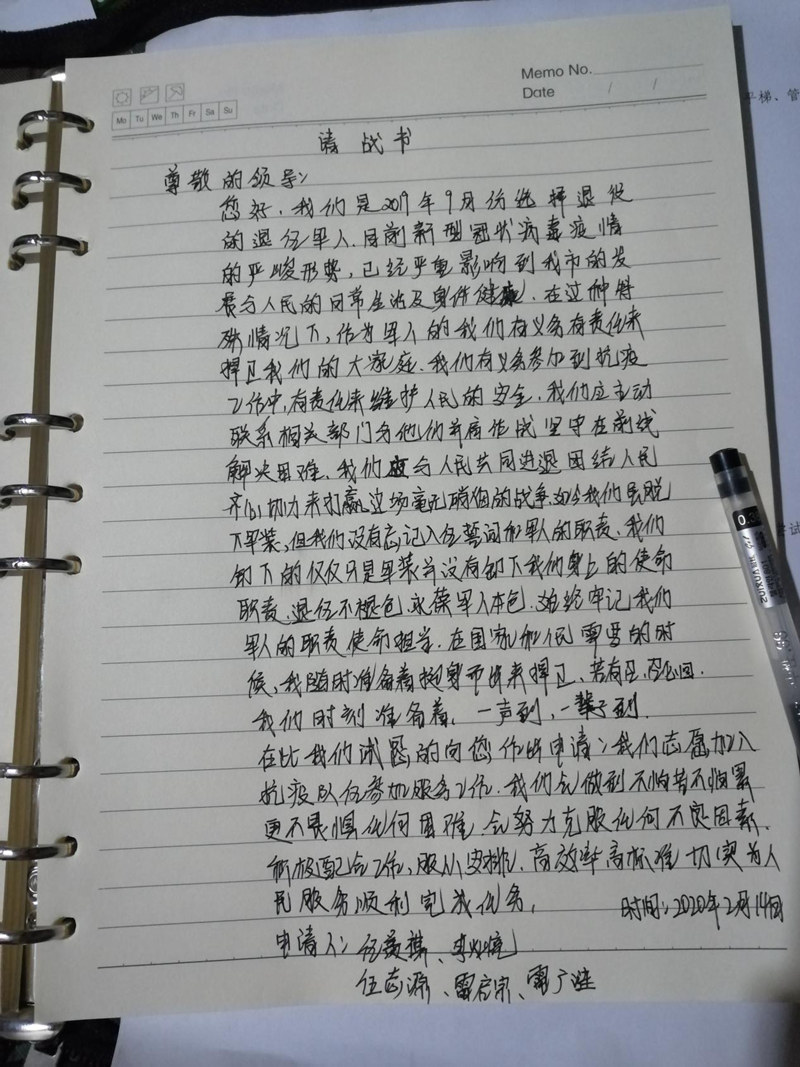 Memo No.
Date / /
Mo Tu We Th Fr Sa Su
平梯、管
请战书
尊敬的领导:
您好,我们是2019年9月份选择退役
的退伍军人.目前新型冠状病毒疫情
的严峻形势,已经严重影响到我市的发
展与人民的日常生活及身体健康.在这种特
殊情况下,作为军人的我们有义务有责任来
捍卫我们的大家庭.我们有义务参加到抗疫
工作中,有责任来维护人民的安全.我们应主动
联系相关部门与他们并肩作战坚守在前线
解决困难.我们应与人民共同进退团结人民
齐心协力来打赢这场毫无硝烟的战争.如今我们虽脱
下军装,但我们没有忘记入伍誓词和军人的职责.我们
卸下的仅仅只是军装并没有卸下我们身上的使命
职责.退伍不褪色,永葆军人本色.始终牢记我们
军人的职责使命担当.在国家和人民需要的时
候,我随时准备着挺身而出来捍卫、若有召,召必回.
我们时刻准备着,一声到,一辈子到.
在此我们诚恳的向您作出申请:我们志愿加入
抗疫队伍参加服务工作.我们会做到不怕苦不怕累
更不畏惧任何困难.会努力克服任何不良因素.
积极配合工作,服从安排,高效率高标准切实为人
民服务顺利完成任务,
时间:2020年2月14日
申请人: 伍
伍志源、雷
0.